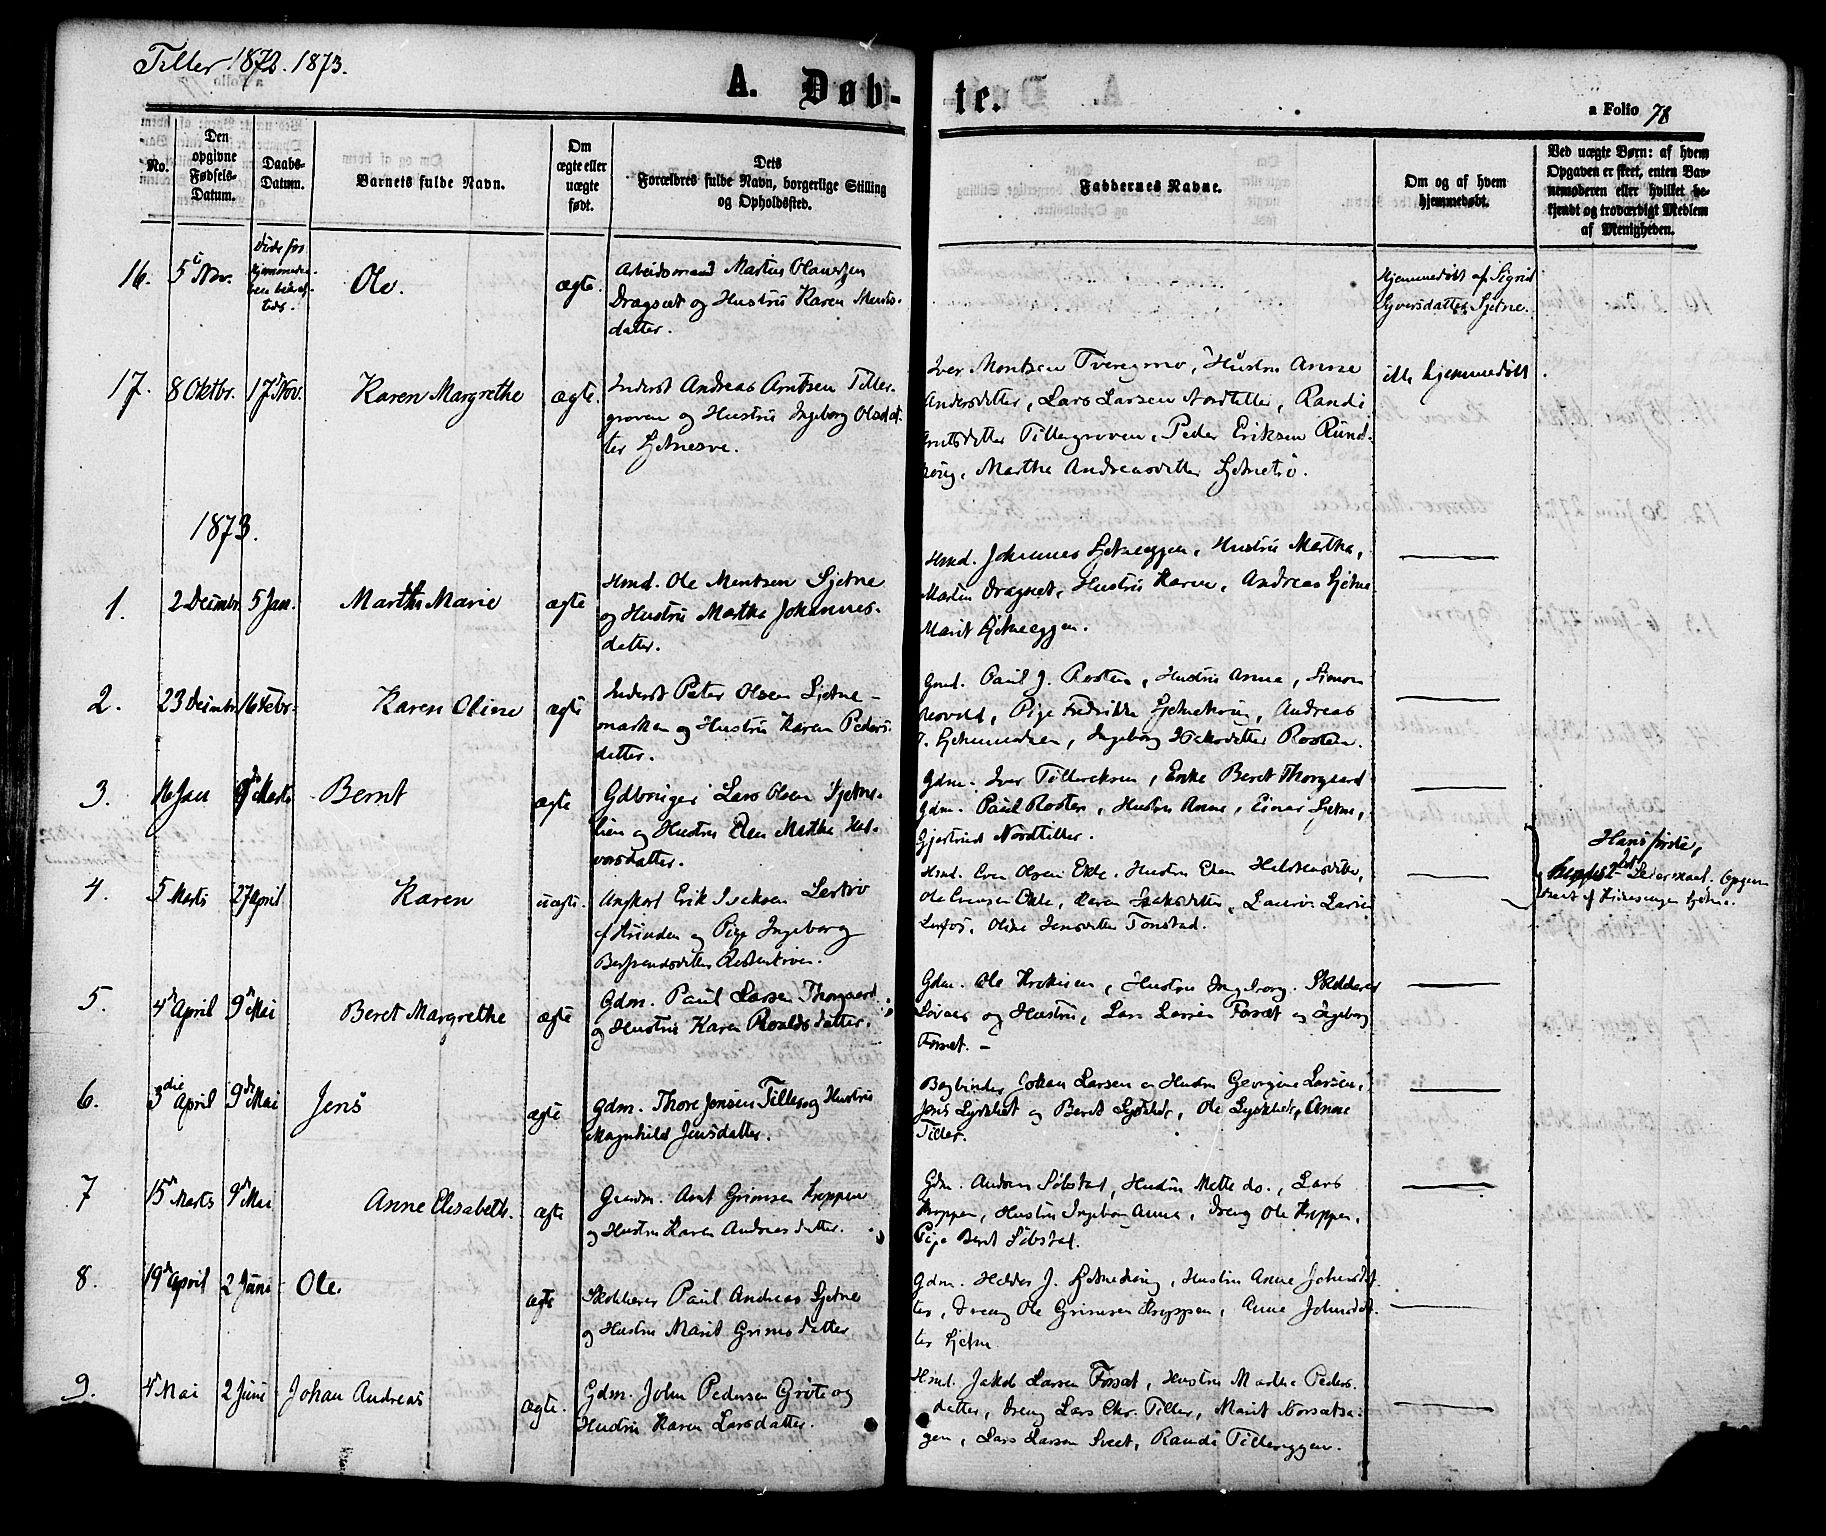 Tiller 1872. 1873.
A. Døb-
te.
a Folio 78
No.
Den
opgivne
Fødsels-
Datum.
Daabs-
Datum.
Barnets fulde Navn.
Om
ægte eller
uægte
født.
Dets
Forældres fulde Navn, borgerlige Stilling
og Opholdssted.
Faddernes Navne.
Om og af hvem
hjemmedøbt.
Ved uægte Børn: af hvem
Opgaven er skeet, enten Bar-
nemoderen eller hvilket be-
kjendt og troværdigt Medlem
af Menigheden.
16. 5 Nov.
Døde før
Ole.
ægte.
Arbeidsmand Martin
Dragsæt og Hustru Karen Ments-
datter.
Hjemmedøbt af Sigrid
Syversdatter Sjetne.
17. 8 Oktbr. 17 Nov. Karen Margrethe ægte.
Inderst Andreas Arntsen Tiller-
groven og Hustru Ingeborg Olsdat-
ter
Iver Mentsen Tveregmo, Hustru Anne
Andersdatter, Lars Larsen Nordtiller, Randi
Arntsdatter Tillergroven, Peder Eriksen Rund-
haug, Marthe Andreasdatter
ikke hjemmedøbt
1873.
1. 2 Decembr 5 Jan. Martha Marie ægte
Hmd. Ole Mentsen Sjetne
og Hustru Martha Johannes-
datter.
Hmd. Johannes Sjetneeggen, Hustru Martha,
Martin Dragsæt, Hustru Karen, Andreas Sjetne
Marit Sjetneeggen.
2. 23 Decembr 16 Febr. Karen Oline ægte
Inderst Peter Olsen Sjetne-
marken og Hustru Karen Peders-
datter.
Gmd. Paul J. Rosten, Hustru Anna, Simon
Pige Fredrikke Sjetnehaug, Andreas
Ingeborg Rosten.
3. 16 Jan 9de Marts Bernt ægte
Gdbruger Lars Olsen Sjetne-
lien og Hustru Elen Martha Hal-
vorsdatter.
Gdm. Iver Tillereksen, Enke Beret Thorgaard
Gdm. Paul Rosten, Hustru Anne, Einar Sjetne,
Gjertrud Nordtiller.
4. 5 Marts 27 April Karen uægte.
Ungkarl Erik Isaksen
af Strinden og Pige Ingeborg
Hmd. Even Olsen
Ole Evensen Karen Isaksdatter,
Oline Jensdatter Tonstad.
Hans første,
hendes 2det Leiermaal.
5. 4de April 9de Mai Beret Margrethe ægte
Gdm. Paul Larsen Thorgaard
og Hustru Karen Roaldsdatter.
Gdm. Ole Hustru Ingeborg. Skolelærer
og Hustru, Lars Larsen Forsæt og Ingeborg
Forsæt. –
6. 3die April 9de Mai Jens ægte
Gdm. Thore Jensen Tiller og Hustru
Magnhild Jensdatter.
Bogbinder Johan Larsen og Hustru Georgine Larsen,
Jens og Beret Ole Anne
Tiller.
7 15de Marts 9de Mai Anne Elisabeth. ægte
Gaardm. Arnt Grimsen Kroppen
og Hustru Karen Andreasdatter.
Gdm. Anders Søbstad, Hustru Mette do., Lars
Kroppen, Hustru Ingeborg Anna, Dreng Ole Kroppen,
Pige Beret Søbstad.
8. 19de April 2 Juni Ole. ægte
Skolelærer Paul Andreas Sjetne
og Hustru Marit Grimsdatter
Gdm. Haldor J. Sjetnehaug, Hustru Anne Johnsdat-
ter, Dreng Ole Grimsen Kroppen, Anne Johnsdat-
ter Sjetne
9. 4 Mai 2 Juni Johan Andreas ægte.
Gdm. John Pedersen Grøte og
Hustru Karen Larsdatter.
Hmd. Jakob Larsen Forsæt, Hustru Marthe Peders-
datter, Dreng Lars Chr. Tiller, Marit
Lars Larsen Randi Tillereggen.